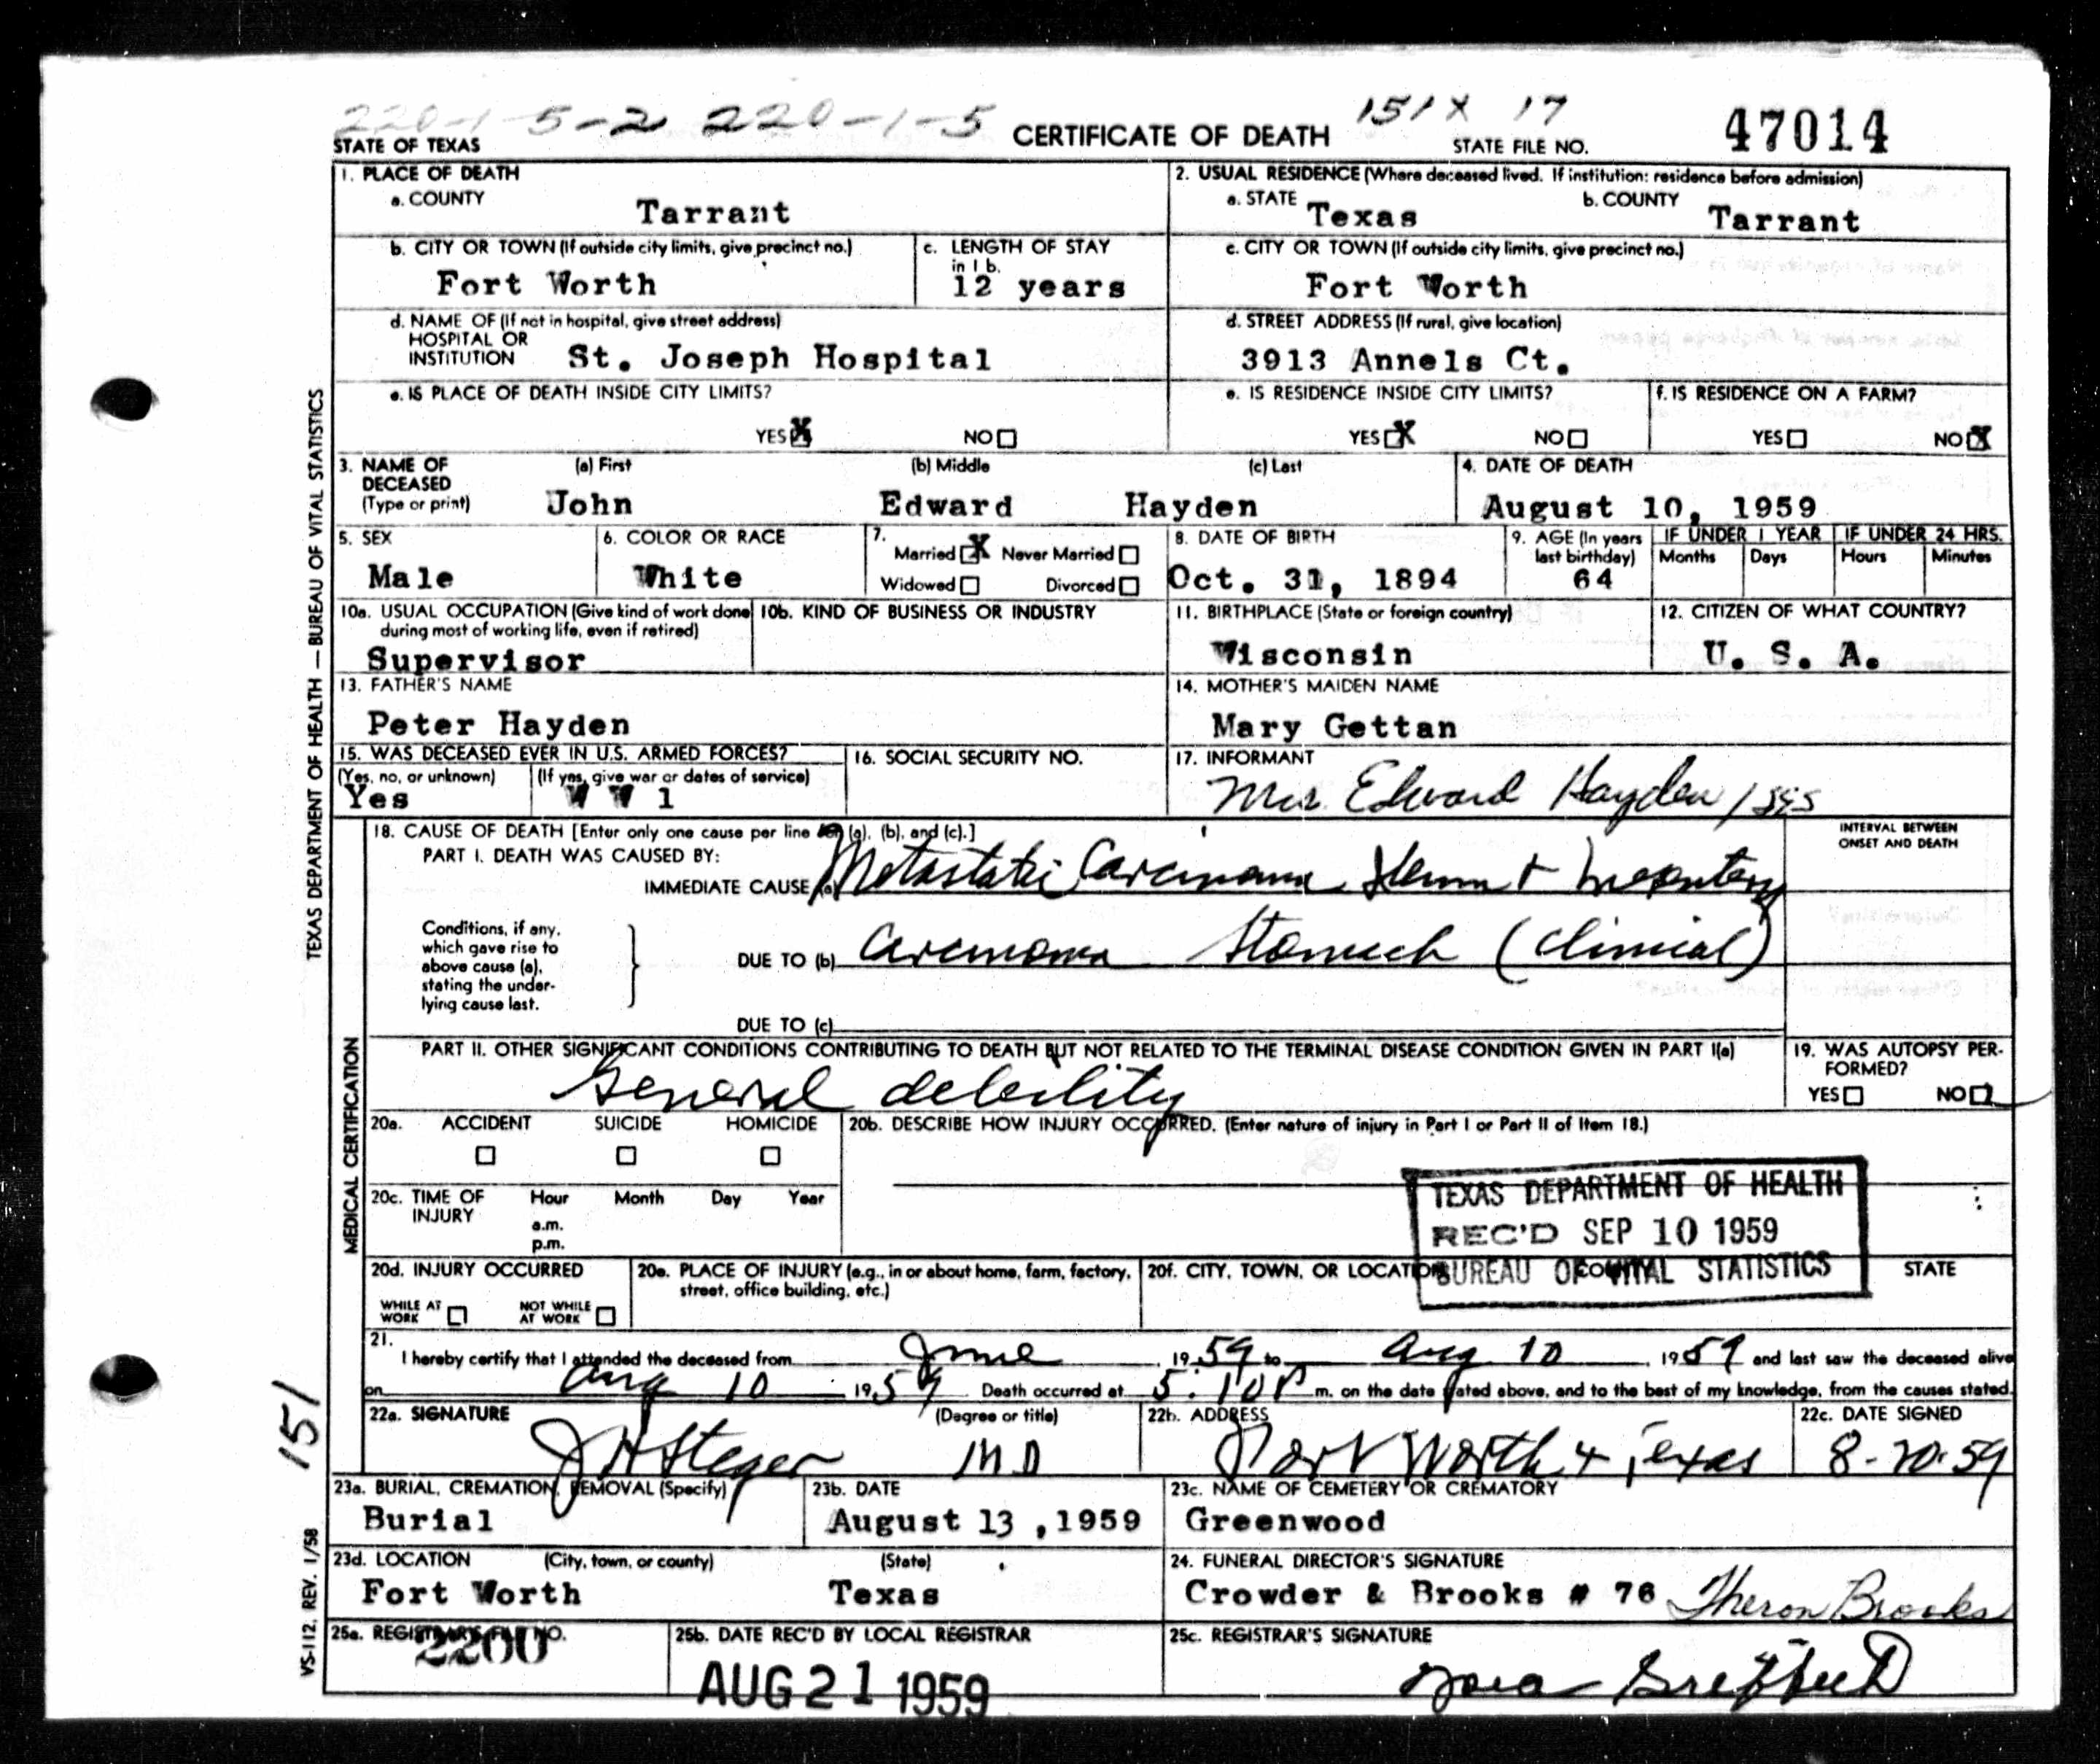 220-1-5-2 220-1-5 151X 17
STATE OF TEXAS CERTIFICATE OF DEATH STATE FILE NO. 47014
TEXAS DEPARTMENT OF HEALTH — BUREAU OF VITAL STATISTICS
1. PLACE OF DEATH
a. COUNTY Tarrant
2. USUAL RESIDENCE (Where deceased lived. If institution: residence before admission)
a. STATE Texas b. COUNTY Tarrant
b. CITY OR TOWN (If outside city limits, give precinct no.) Fort Worth
c. LENGTH OF STAY in 1 b. 12 years
c. CITY OR TOWN (If outside city limits, give precinct no.) Fort Worth
d. NAME OF (If not in hospital, give street address) HOSPITAL OR INSTITUTION St. Joseph Hospital
d. STREET ADDRESS (If rural, give location) 3913 Annels Ct.
e. IS PLACE OF DEATH INSIDE CITY LIMITS? YES X NO
e. IS RESIDENCE INSIDE CITY LIMITS? YES X NO
f. IS RESIDENCE ON A FARM? YES NO X
3. NAME OF DECEASED (Type or print) (a) First John (b) Middle Edward (c) Last Hayden
4. DATE OF DEATH August 10, 1959
5. SEX Male
6. COLOR OR RACE White
7. Married X Never Married Widowed Divorced
8. DATE OF BIRTH Oct. 31, 1894
9. AGE (In years last birthday) 64
IF UNDER 1 YEAR Months Days
IF UNDER 24 HRS. Hours Minutes
10a. USUAL OCCUPATION (Give kind of work done during most of working life, even if retired) Supervisor
10b. KIND OF BUSINESS OR INDUSTRY
11. BIRTHPLACE (State or foreign country) Wisconsin
12. CITIZEN OF WHAT COUNTRY? U. S. A.
13. FATHER'S NAME Peter Hayden
14. MOTHER'S MAIDEN NAME Mary Gettan
15. WAS DECEASED EVER IN U.S. ARMED FORCES?
(Yes, no, or unknown) Yes (If yes, give war or dates of service) W W 1
16. SOCIAL SECURITY NO.
17. INFORMANT Mrs. Edward Hayden
MEDICAL CERTIFICATION
18. CAUSE OF DEATH [Enter only one cause per line for (a), (b), and (c).]
INTERVAL BETWEEN ONSET AND DEATH
PART I. DEATH WAS CAUSED BY:
IMMEDIATE CAUSE (a) Metastatic Carcinoma + mesentery
Conditions, if any, which gave rise to above cause (a), stating the underlying cause last.
DUE TO (b) Carcinoma Stomach (Clinical)
DUE TO (c)
PART II. OTHER SIGNIFICANT CONDITIONS CONTRIBUTING TO DEATH BUT NOT RELATED TO THE TERMINAL DISEASE CONDITION GIVEN IN PART I(a)
General debility
19. WAS AUTOPSY PERFORMED? YES NO
20a. ACCIDENT SUICIDE HOMICIDE
20b. DESCRIBE HOW INJURY OCCURRED. (Enter nature of injury in Part I or Part II of Item 18.)
20c. TIME OF INJURY Hour Month Day Year a.m. p.m.
TEXAS DEPARTMENT OF HEALTH
REC'D SEP 10 1959
BUREAU OF VITAL STATISTICS
20d. INJURY OCCURRED WHILE AT WORK NOT WHILE AT WORK
20e. PLACE OF INJURY (e.g., in or about home, farm, factory, street, office building, etc.)
20f. CITY, TOWN, OR LOCATION COUNTY STATE
21. I hereby certify that I attended the deceased from June, 19 59 to Aug 10, 19 59 and last saw the deceased alive
on Aug 10 19 59 Death occurred at 5:10 P m. on the date stated above, and to the best of my knowledge, from the causes stated.
22a. SIGNATURE J H Steger (Degree or title) M D
22b. ADDRESS Fort Worth 4 Texas
22c. DATE SIGNED 8-20-59
151
23a. BURIAL, CREMATION, REMOVAL (Specify) Burial
23b. DATE August 13, 1959
23c. NAME OF CEMETERY OR CREMATORY Greenwood
23d. LOCATION (City, town, or county) Fort Worth (State) Texas
24. FUNERAL DIRECTOR'S SIGNATURE Crowder & Brooks # 76 Theron Brooks
25a. REGISTRAR'S FILE NO. 2200
25b. DATE REC'D BY LOCAL REGISTRAR AUG 21 1959
25c. REGISTRAR'S SIGNATURE
VS-112, REV. 1/58